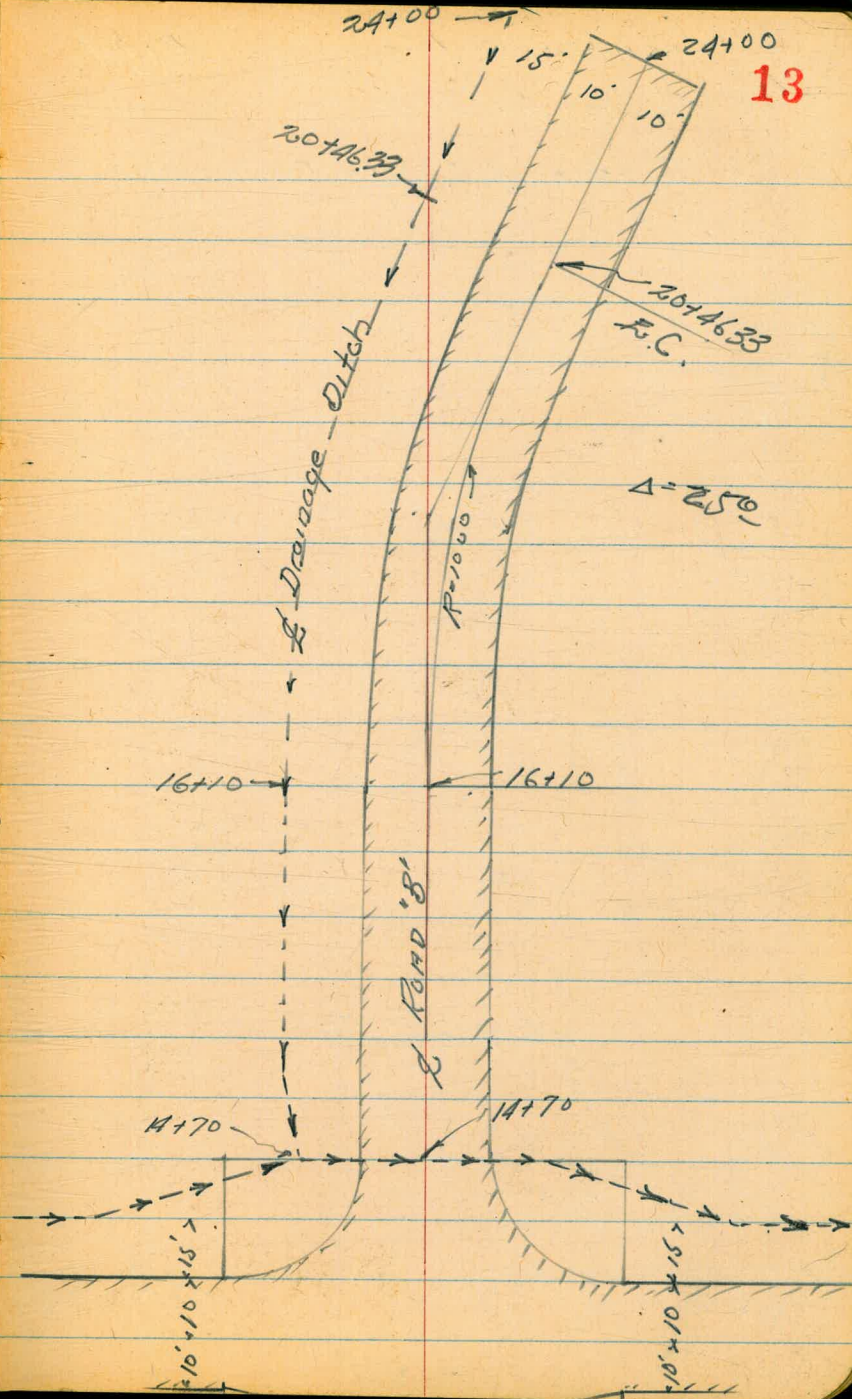 24+00
24+00
13
15'
10'
10'
20+46.33
20+46.33
E.C.
℄ Drainage Ditch
Δ=25°
R=1000
16+10
16+10
℄ ROAD "B"
14+70
14+70
10' 10' 15'
10' 10' 15'